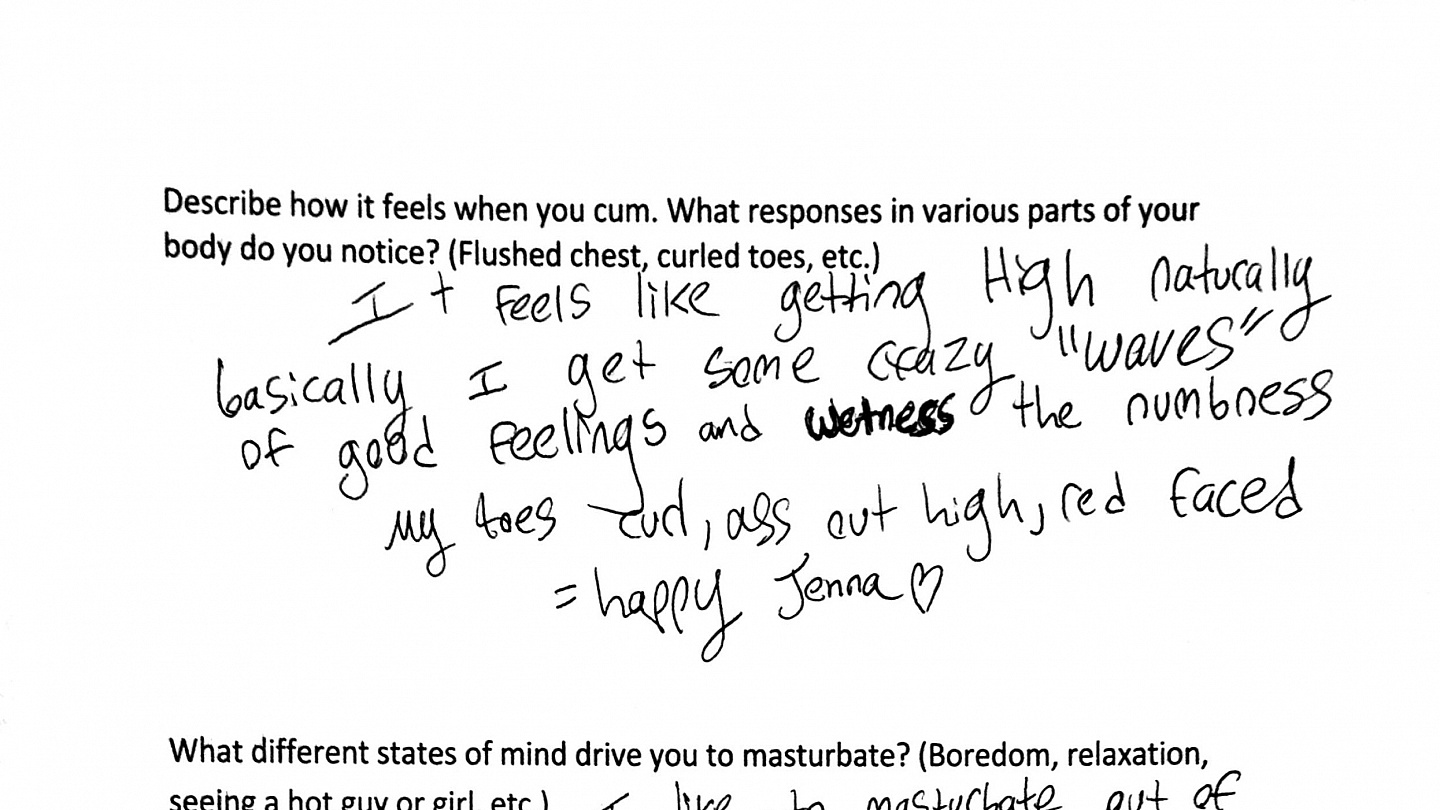 Describe how it feels when you cum. What responses in various parts of your
body do you notice? (Flushed chest, curled toes, etc.)
It feels like getting High naturally
basically I get some crazy "waves"
of good feelings and wetness the numbness
my toes curl, ass out high, red faced
= happy Jenna ♡
What different states of mind drive you to masturbate? (Boredom, relaxation,
seeing a hot guy or girl, etc.) I like to masturbate out of